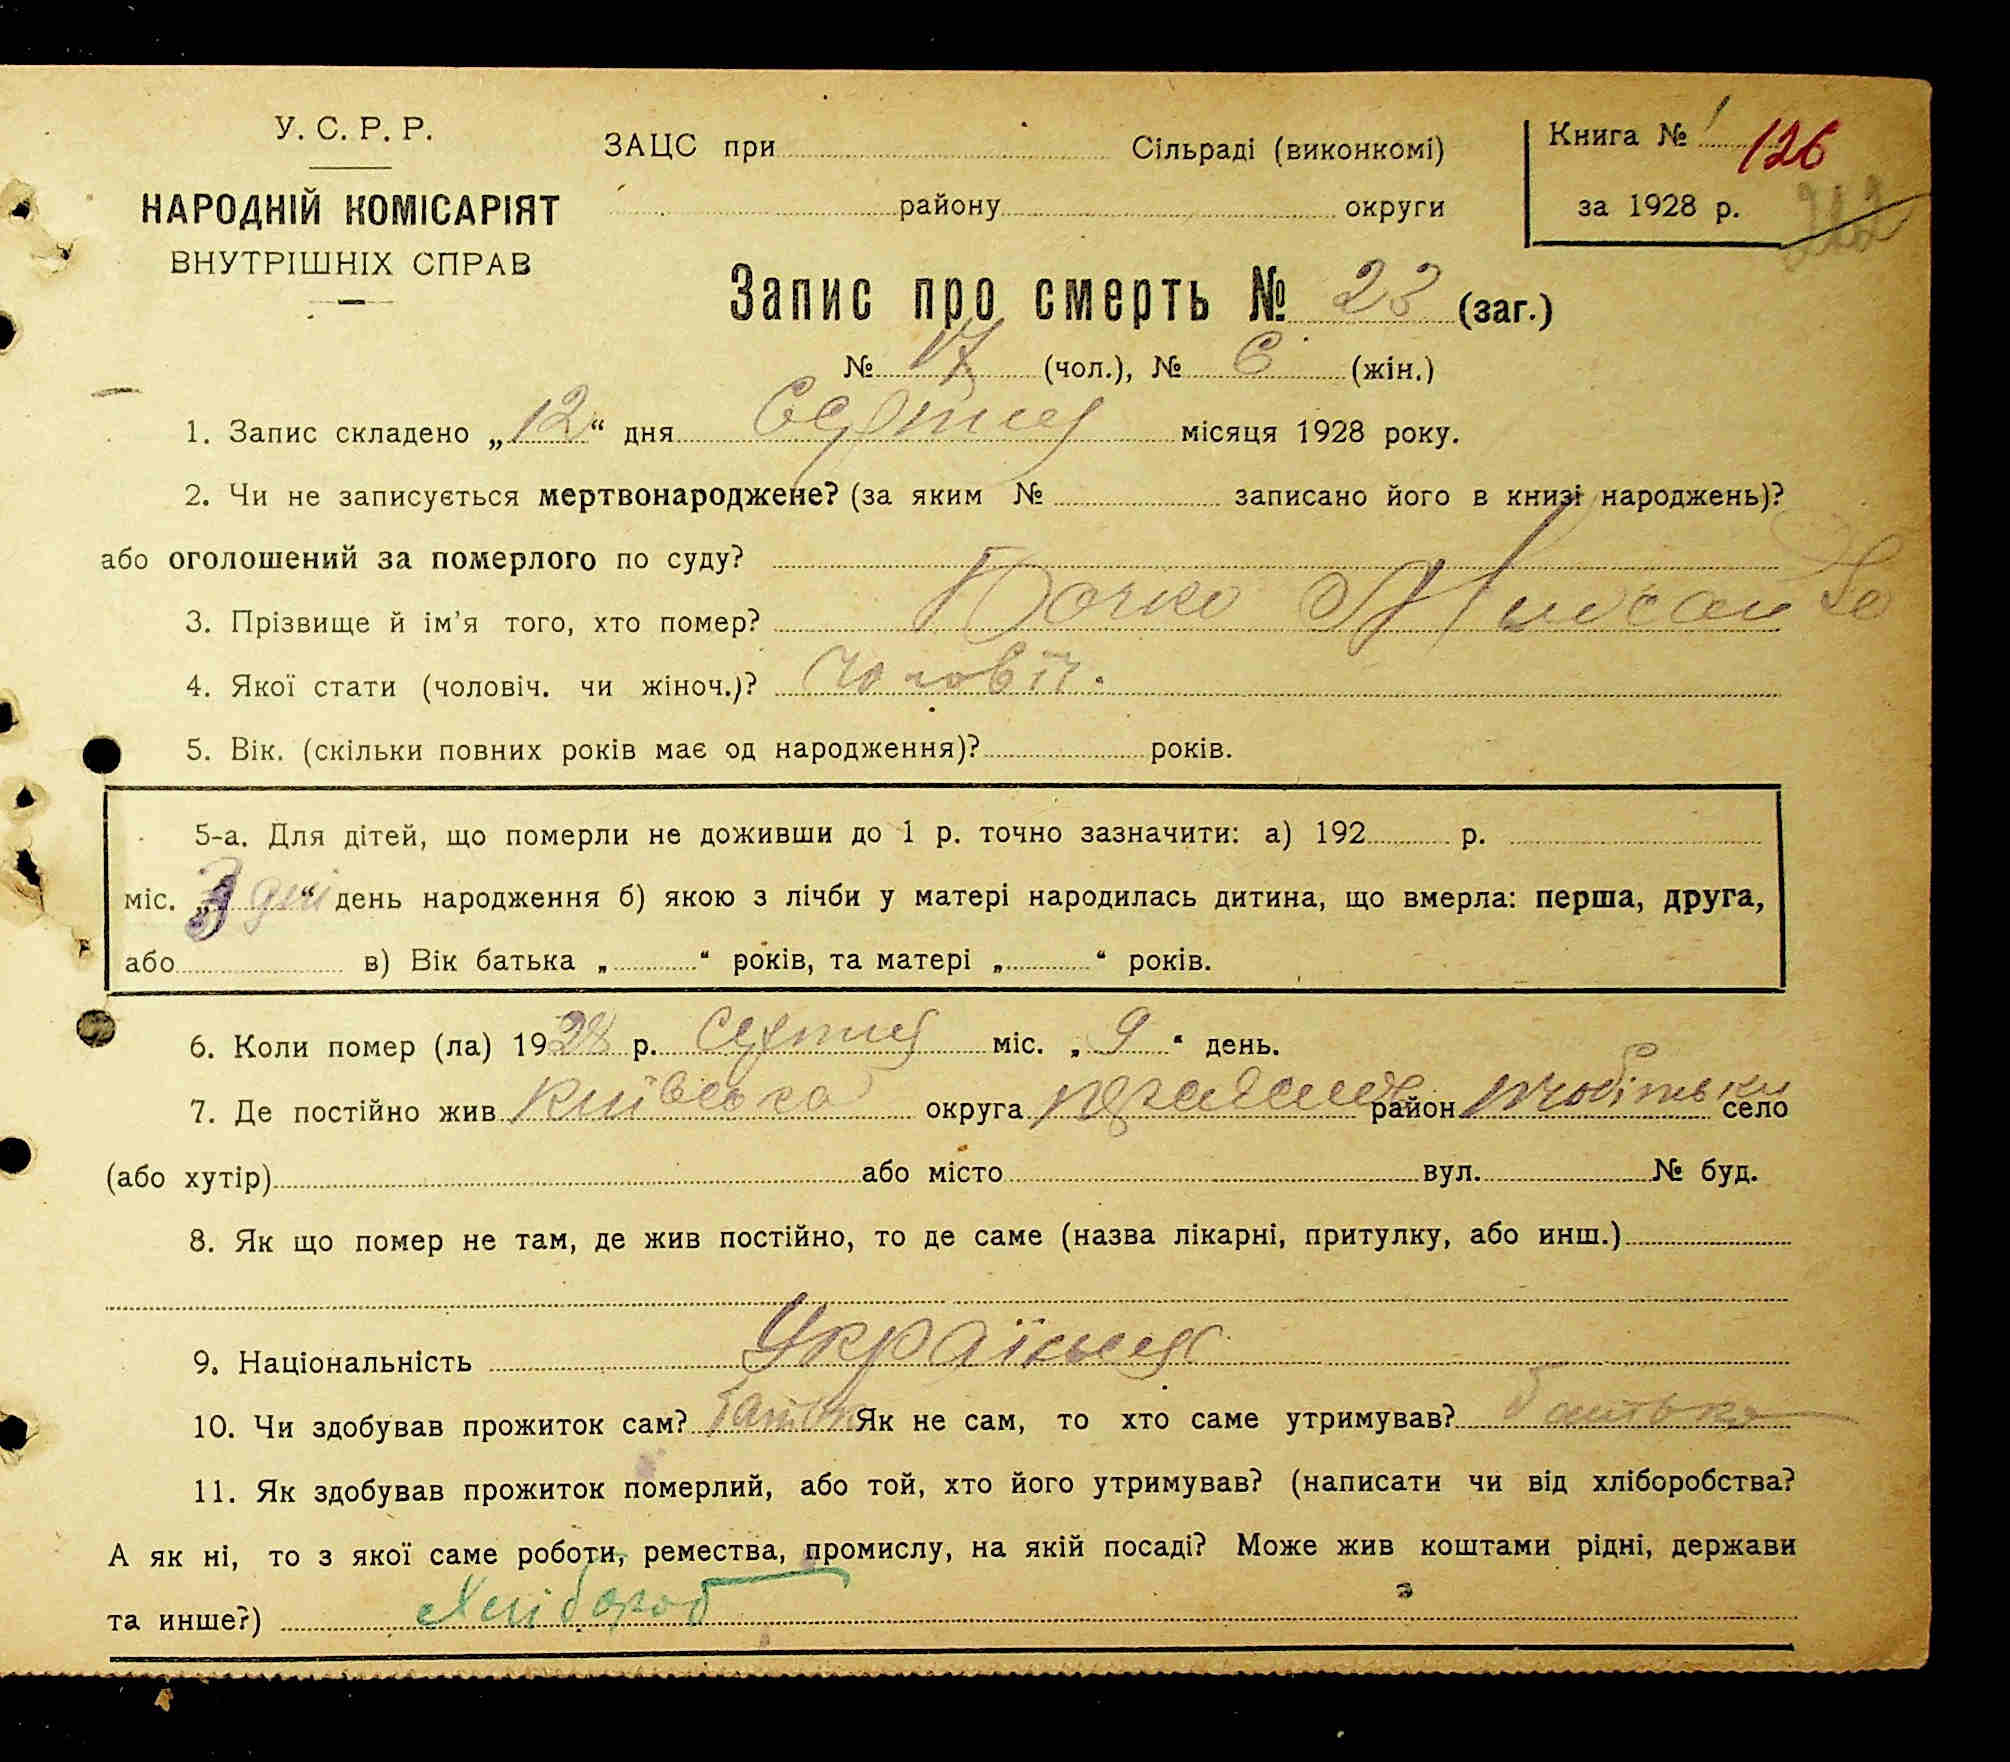 У. С. Р. Р.
НАРОДНІЙ КОМІСАРІЯТ
ВНУТРІШНІХ СПРАВ
ЗАЦС при Сільраді (виконкомі)
району округи
Книга № 1 126
за 1928 р. 212
Запис про смерть № 23 (заг.)
№ 17 (чол.), № 6 (жін.)
1. Запис складено „12“ дня Серпня місяця 1928 року.
2. Чи не записується мертвонароджене? (за яким № записано його в книзі народжень)?
або оголошений за померлого по суду?
3. Прізвище й ім'я того, хто помер? Бочко
4. Якої стати (чоловіч. чи жіноч.)? Чоловіч.
5. Вік. (скільки повних років має од народження)? років.
5-а. Для дітей, що померли не доживши до 1 р. точно зазначити: а) 192 р.
міс. „3 дні“ день народження б) якою з лічби у матері народилась дитина, що вмерла: перша, друга,
або в) Вік батька „ “ років, та матері „ “ років.
6. Коли помер (ла) 1928 р. Серпня міс. „9“ день.
7. Де постійно жив Київська округа район село
(або хутір) або місто вул. № буд.
8. Як що помер не там, де жив постійно, то де саме (назва лікарні, притулку, або инш.)
9. Національність Українець
10. Чи здобував прожиток сам? батько Як не сам, то хто саме утримував? батько
11. Як здобував прожиток померлий, або той, хто його утримував? (написати чи від хліборобства?
А як ні, то з якої саме роботи, ремества, промислу, на якій посаді? Може жив коштами рідні, держави
та инше?) Хлібороб